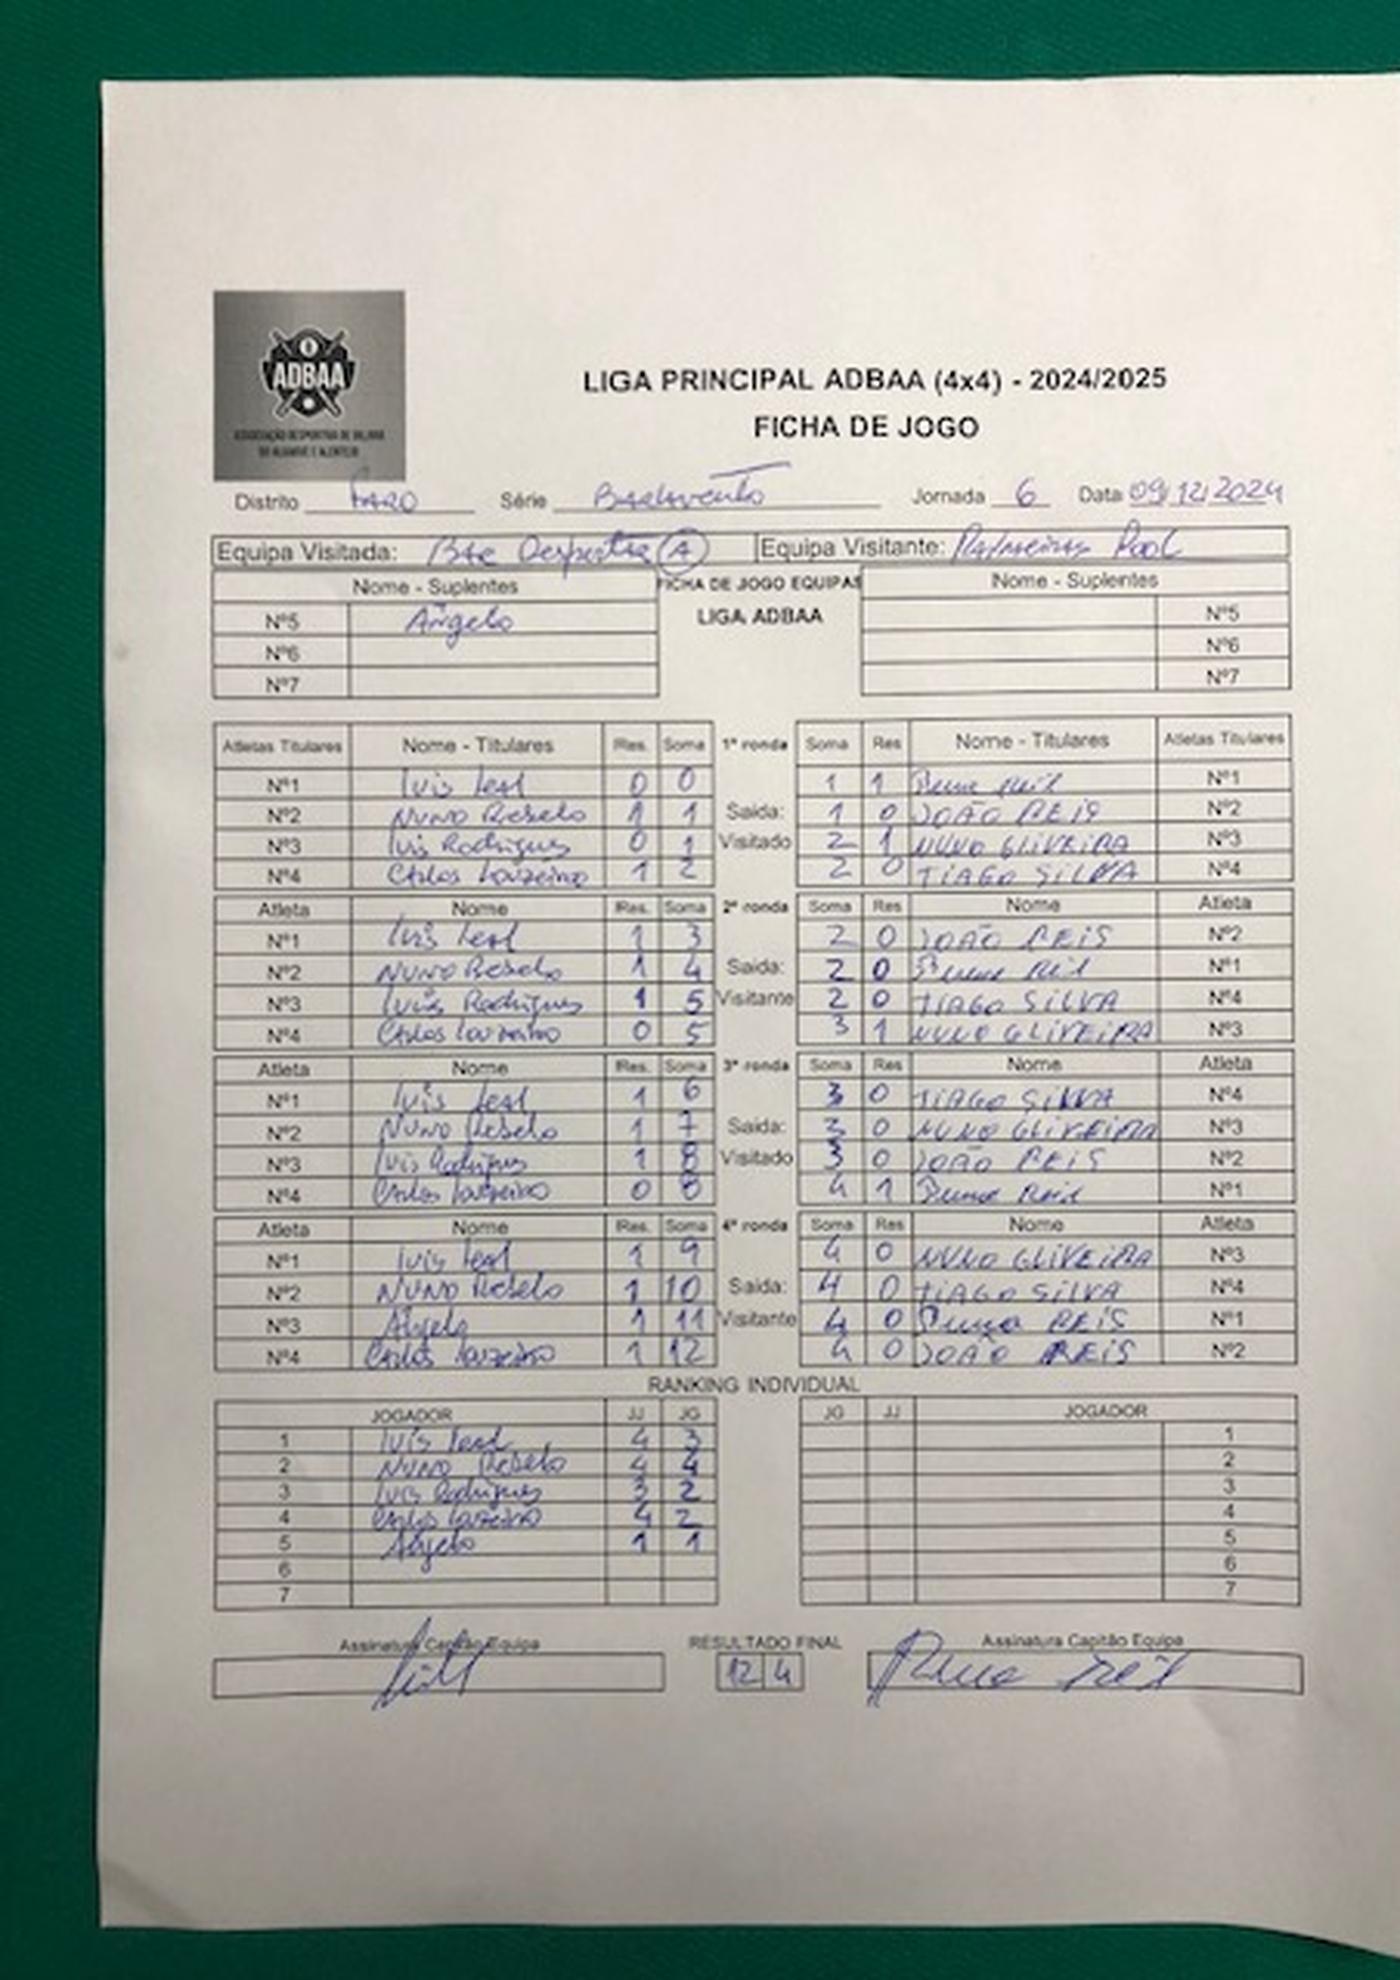 ADBAA
ASSOCIAÇÃO DESPORTIVA DE BILHAR
DO ALGARVE E ALENTEJO
LIGA PRINCIPAL ADBAA (4x4) - 2024/2025
FICHA DE JOGO
Distrito FARO Série Barlavento Jornada 6 Data 09/12/2024
Equipa Visitada: Desportiva (A) Equipa Visitante: Palmeiras Pool
Nome - Suplentes FICHA DE JOGO EQUIPAS Nome - Suplentes
Nº5 Ângelo LIGA ADBAA Nº5
Nº6 Nº6
Nº7 Nº7
Atletas Titulares Nome - Titulares Res. Soma 1ª ronda Soma Res Nome - Titulares Atletas Titulares
Nº1 Luis Leal 0 0 1 1 Nº1
Nº2 Nuno Rebelo 1 1 Saida: 1 0 JOÃO REIS Nº2
Nº3 Luis Rodrigues 0 1 Visitado 2 1 NUNO OLIVEIRA Nº3
Nº4 Carlos Louzeiro 1 2 2 0 TIAGO SILVA Nº4
Atleta Nome Res. Soma 2ª ronda Soma Res Nome Atleta
Nº1 Luis Leal 1 3 2 0 JOÃO REIS Nº2
Nº2 Nuno Rebelo 1 4 Saida: 2 0 Nº1
Nº3 Luis Rodrigues 1 5 Visitante 2 0 TIAGO SILVA Nº4
Nº4 Carlos Louzeiro 0 5 3 1 NUNO OLIVEIRA Nº3
Atleta Nome Res. Soma 3ª ronda Soma Res Nome Atleta
Nº1 Luis Leal 1 6 3 0 TIAGO SILVA Nº4
Nº2 Nuno Rebelo 1 7 Saida: 3 0 NUNO OLIVEIRA Nº3
Nº3 Luis Rodrigues 1 8 Visitado 3 0 JOÃO REIS Nº2
Nº4 Carlos Louzeiro 0 8 4 1 Nº1
Atleta Nome Res. Soma 4ª ronda Soma Res Nome Atleta
Nº1 Luis Leal 1 9 4 0 NUNO OLIVEIRA Nº3
Nº2 Nuno Rebelo 1 10 Saida: 4 0 TIAGO SILVA Nº4
Nº3 Ângelo 1 11 Visitante 4 0 REIS Nº1
Nº4 Carlos Louzeiro 1 12 4 0 JOÃO REIS Nº2
RANKING INDIVIDUAL
JOGADOR JJ JG JG JJ JOGADOR
1 Luis Leal 4 3 1
2 Nuno Rebelo 4 4 2
3 Luis Rodrigues 3 2 3
4 Carlos Louzeiro 4 2 4
5 Ângelo 1 1 5
6 6
7 7
Assinatura Capitão Equipa RESULTADO FINAL Assinatura Capitão Equipa
12 4